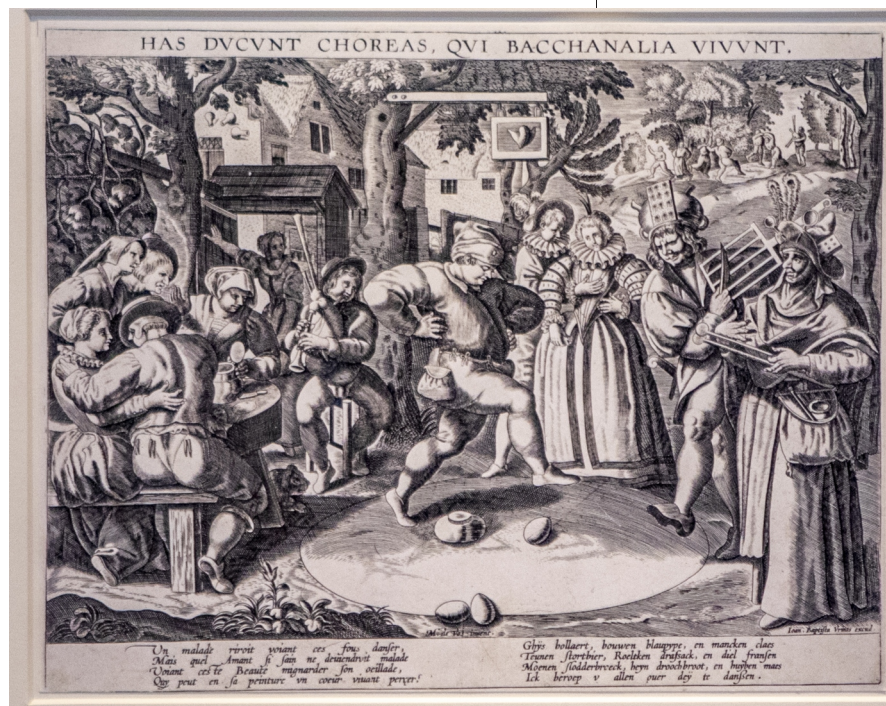 HAS DVCVNT CHOREAS, QVI BACCHANALIA VIVVNT.
M. de Vos invent.
Ioan. Baptista Vrints excud
Un malade riroit voiant ces fous danser,
Mais quel Amant si sain ne deviendroit malade
Voiant ceste Beaute mignarder son oeillade,
Qui peut en sa peinture vn coeur vivant perçer!
Ghijs bollaert, bouwen blaupype, en mancken claes
Teunen stortbier, Roeltken drafsack, en diel fransen
Moenen slodderbroeck, heyn droochbroot, en huyben maes
Ick beroep v allen ouer dey te danssen.